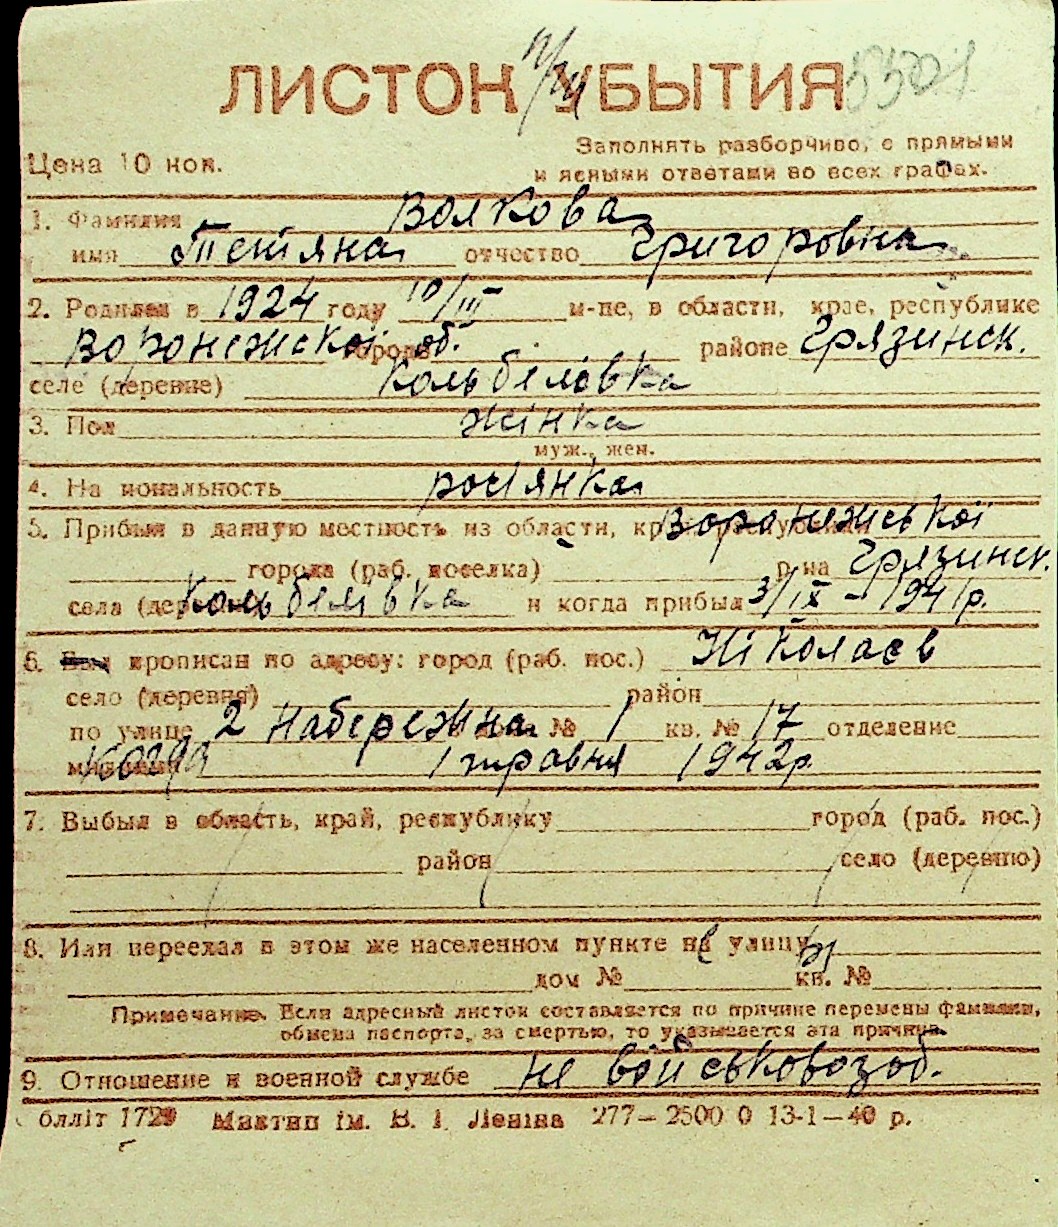 ЛИСТОК УБЫТИЯ 5501
Цена 10 коп.
Заполнять разборчиво, с прямыми
и ясными ответами во всех графах.
1. Фамилия Волкова
имя Тетяна отчество Григоровна
2. Родился в 1924 году 10/III м-це, в области, крае, республике
Воронежскої об. города районе Грязинск.
селе (деревне) Кольбеловка
3. Пол жінка
муж., жен.
4. Национальность росіянка
5. Прибыл в данную местность из области, края, республики Воронежської
города (раб. поселка) р-на Грязинск.
села (деревни) Кольбеловка и когда прибыл 3/IX - 1941р.
6. Был прописан по адресу: город (раб. пос.) Ніколаєв
село (деревня) район
по улице 2 Набережна дом № 1 кв. № 17 отделение
милиции когда 1 травня 1942р.
7. Выбыл в область, край, республику город (раб. пос.)
район село (деревню)
8. Или переехал в этом же населенном пункте на улицу
дом № кв. №
Примечание. Если адресный листок составляется по причине перемены фамилии,
обмена паспорта, за смертью, то указывается эта причина.
9. Отношение к военной службе не військовозоб.
блліт 1729 Миктип ім. В. І. Леніна 277—2500 0 13-1—40 р.